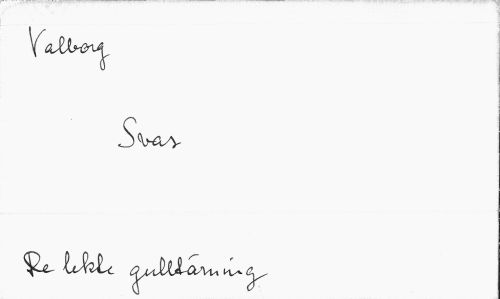 Valborg
Svar
De lekte gulltärning